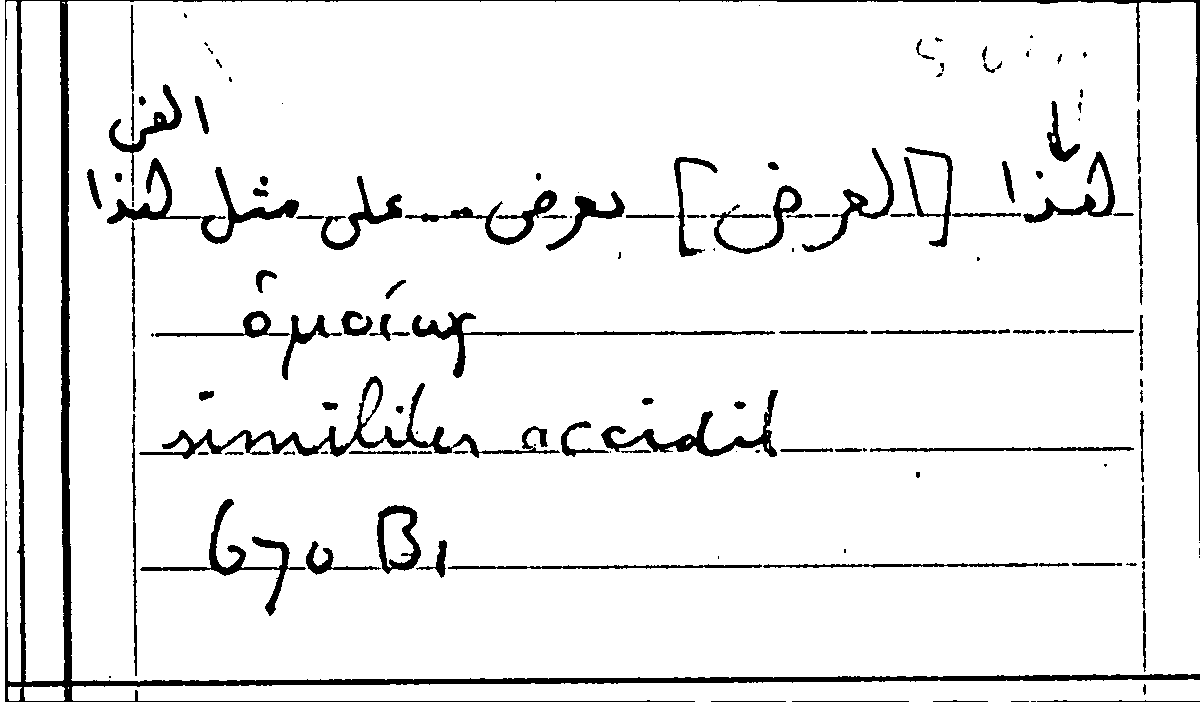 هذا [العرض] يعرض... على مثل هذا
الفن
ὁμοίως
similiter accidit
670 B1